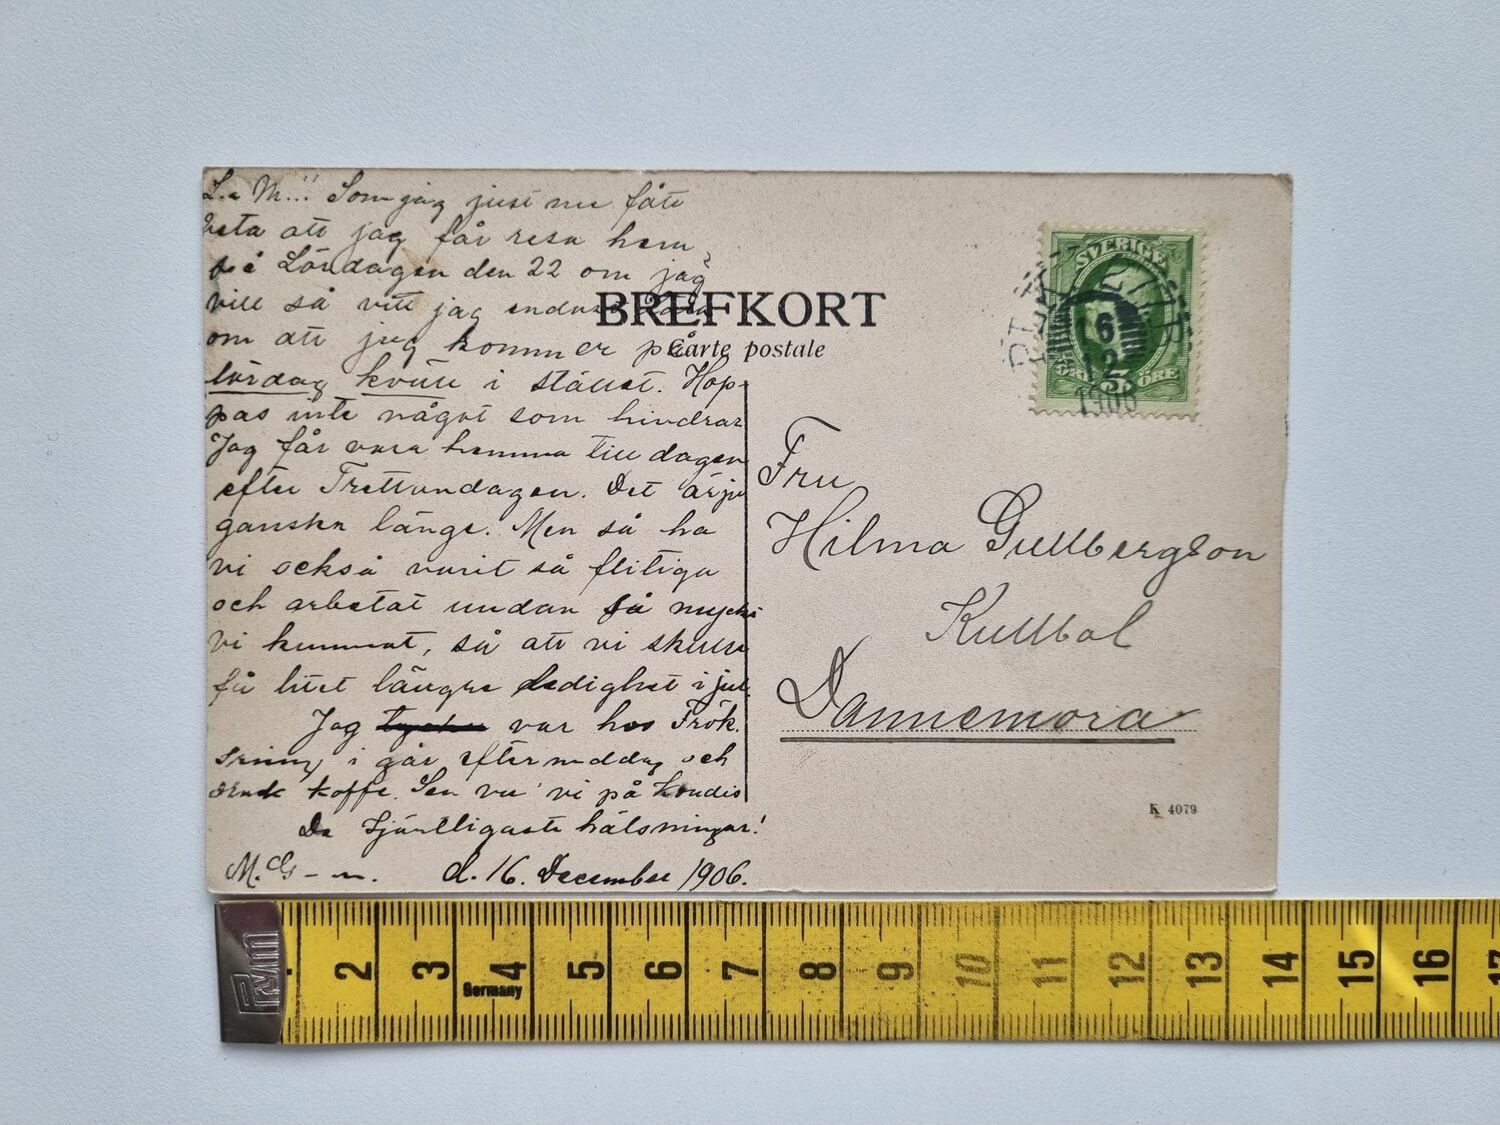 L. M...! Som jag just nu fått
veta att jag får resa hem
på Lördagen den 22 om jag
vill så vill jag endast tala
om att jag kommer på
lördag kväll i stället. Hop-
pas inte något som hindrar
Jag får vara hemma till dagen
efter Trettondagen. Det är ju
ganska länge. Men så ha
vi också varit så flitiga
och arbetat undan så mycket
vi kunnat, så att vi skulle
få litet längre ledighet i jul.
Jag var hos Frök.
i går eftermiddag och
drack kaffe. Sen vi på kondis
De hjärtligaste hälsningar!
M. G-n. d. 16. December 1906.
BREFKORT
Carte postale
SVERIGE
5 ÖRE
6
12
1906
Fru
Hilma Gullbergson
Kullbol
Dannemora
K 4079
Pvm
2 3 4 5 6 7 8 9 10 11 12 13 14 15 16 17
Germany